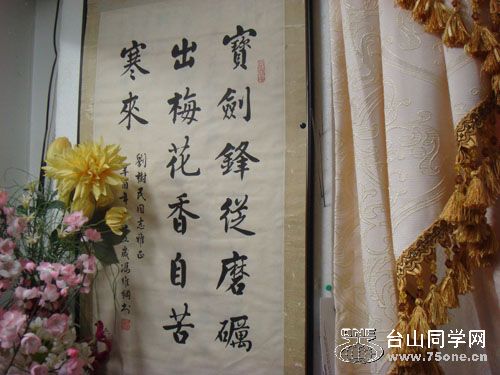 寶劍鋒從磨礪
出梅花香自苦
寒來
劉樹民同志雅正
台山同学网
www.75one.cn